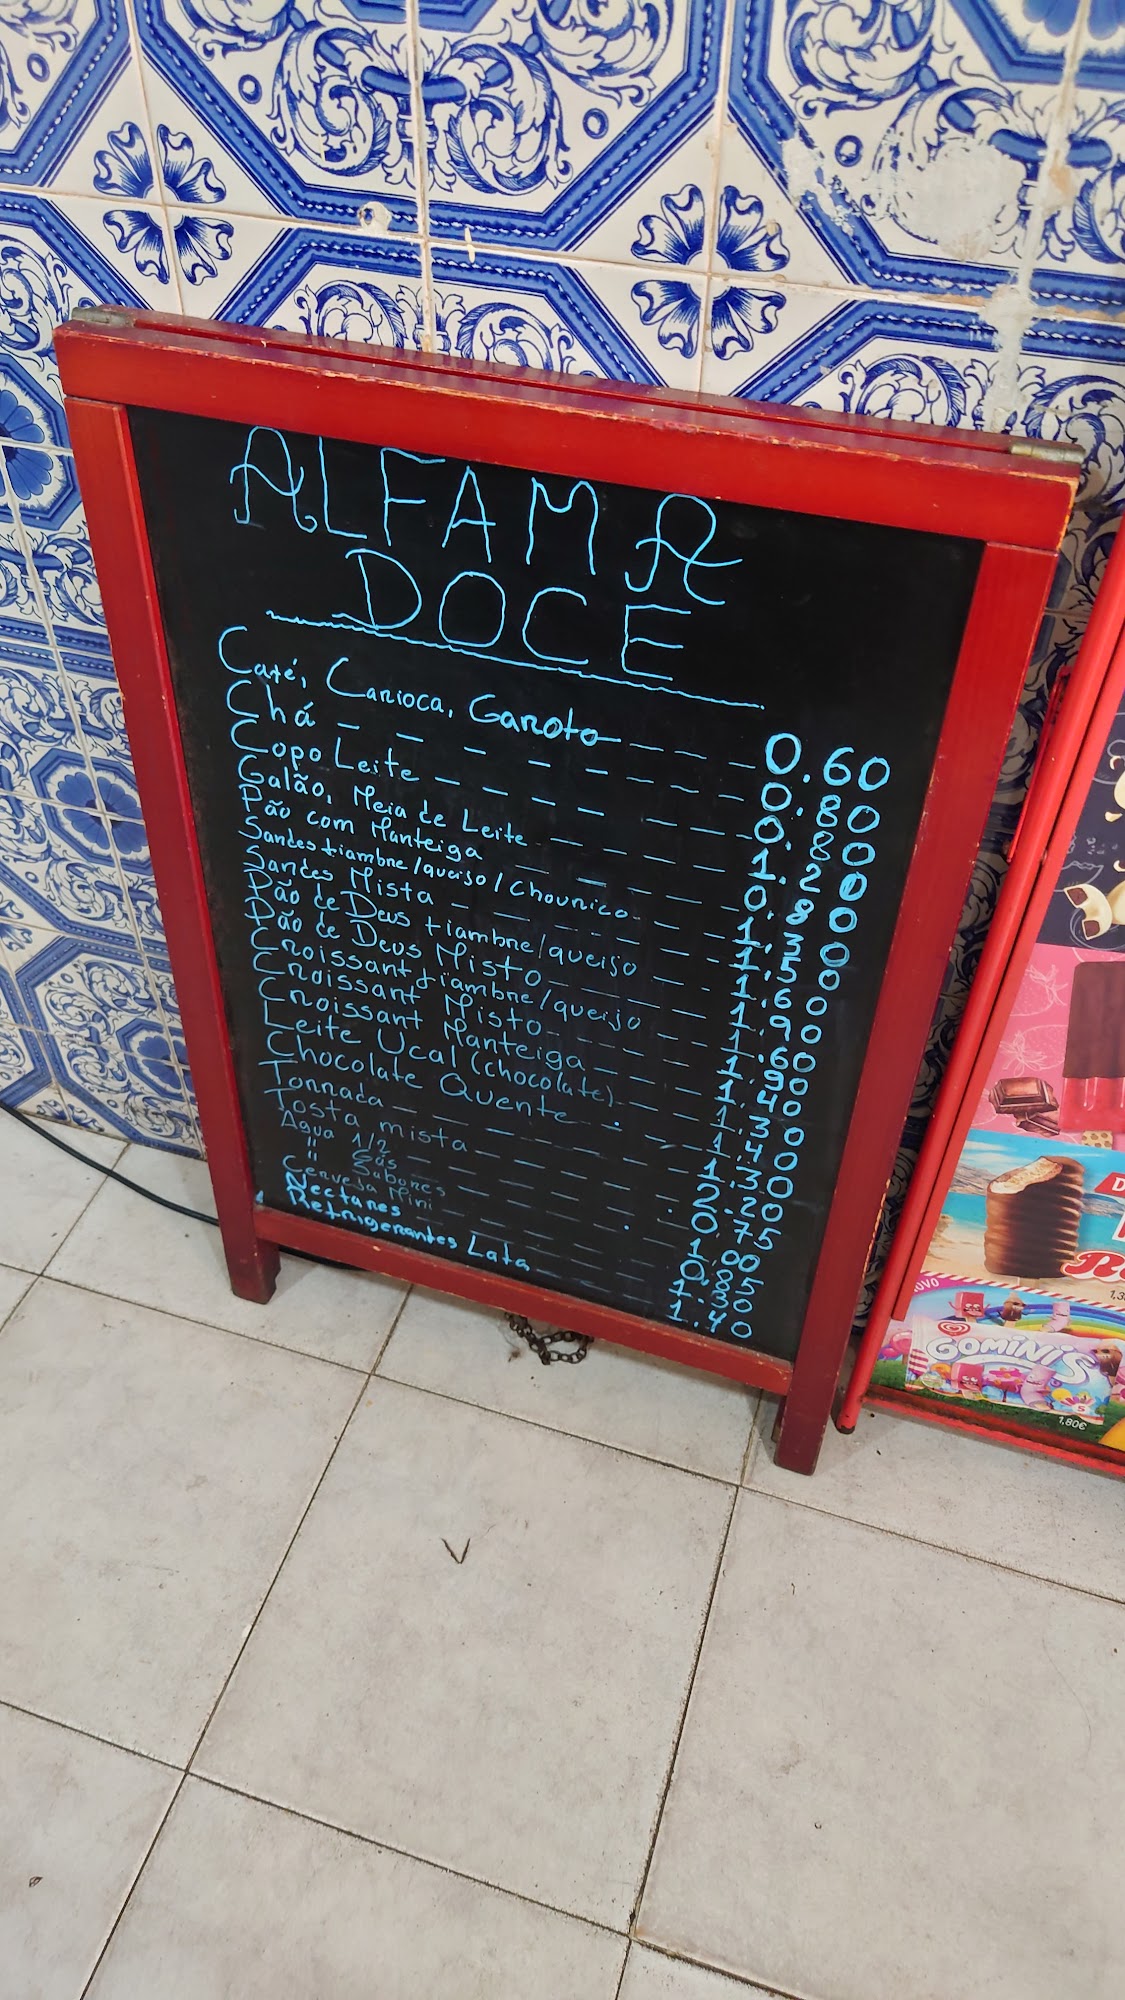 ALFAMA
DOCE
Café, Carioca, Garoto 0.60
Chá 0.80
Copo Leite 0.80
Galão, Meia de Leite 1.20
Pão com Manteiga 0.80
Sandes fiambre/queijo/Chouriço 1.30
Sandes Mista 1.50
Pão de Deus fiambre/queijo 1.60
Pão de Deus Misto 1.90
Croissant fiambre/queijo 1.60
Croissant Misto 1.90
Croissant Manteiga 1.40
Leite Ucal (chocolate) 1.30
Chocolate Quente 1.40
Torrada 1.30
Tosta mista 2.20
Agua 1/2 0.75
" Gás Sabores 1.00
Cerveja Mini 0.85
Nectares 1.30
Refrigerantes Lata 1.40
GOMINIS
5
1,80€